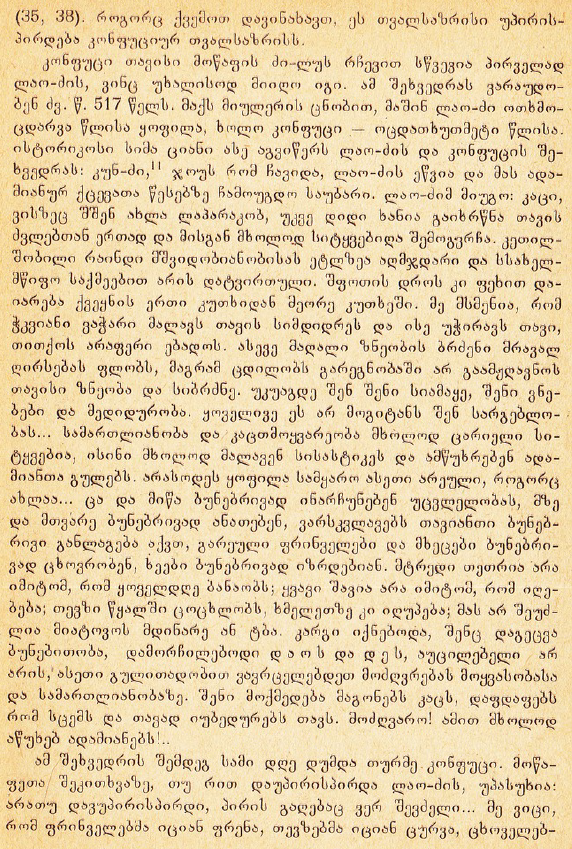 (35, 38). როგორც ქვემოთ დავინახავთ, ეს თვალსაზრისი უპირის-
პირდება კონფუციურ თვალსაზრისს.
კონფუცი თავისი მოწაფის ძი-ლუს რჩევით სწვევია პირველად
ლაო-ძის, ვინც უხალისოდ მიიღო იგი. ამ შეხვედრას ვარაუდო-
ბენ ძვ. წ. 517 წელს. მაქს მიულერის ცნობით, მაშინ ლაო-ძი ოთხმო-
ცდარვა წლისა ყოფილა, ხოლო კონფუცი — ოცდათხუთმეტი წლისა.
ისტორიკოსი სიმა ციანი ასე აგვიწერს ლაო-ძის და კონფუცის შე-
ხვედრას: კუნ-ძი,¹¹ ჯოუს რომ ჩავიდა, ლაო-ძის ეწვია და მას ადა-
მიანურ ქცევათა წესებზე ჩამოუგდო საუბარი. ლაო-ძიმ მიუგო: კაცი,
ვისზეც შშენ ახლა ლაპარაკობ, უკვე დიდი ხანია გაიხრწნა თავის
ძვლებთან ერთად და მისგან მხოლოდ სიტყვებიღა შემოგვრჩა. კეთილ-
შობილი რაინდი მშვიდობიანობისას ეტლზეა აღმჯდარი და სსახელ-
მწიფო საქმეებით არის დატვირთული. შფოთის დროს კი ფეხით და-
იარება ქვეყნის ერთი კუთხიდან მეორე კუთხეში. მე მსმენია, რომ
ჭკვიანი ვაჭარი მალავს თავის სიმდიდრეს და ისე უჭირავს თავი,
თითქოს არაფერი ებადოს. ასევე მაღალი ზნეობის ბრძენი მრავალ
ღირსებას ფლობს, მაგრამ ცდილობს გარეგნობაში არ გაამჟღავნოს
თავისი ზნეობა და სიბრძნე. უკუაგდე შენ შენი სიამაყე, შენი ვნე-
ბები და მედიდურობა. ყოველივე ეს არ მოგიტანს შენ სარგებლო-
ბას... სამართლიანობა და კაცთმოყვარეობა მხოლოდ ცარიელი სი-
ტყვებია, ისინი მხოლოდ მალავენ სისასტიკეს და ამწუხრებენ ადა-
მიანთა გულებს. არასოდეს ყოფილა სამყარო ასეთი არეული, როგორც
ახლაა... ცა და მიწა ბუნებრივად ინარჩუნებენ უცვლელობას, მზე
და მთვარე ბუნებრივად ანათებენ, ვარსკვლავებს თავიანთი ბუნებ-
რივი განლაგება აქვთ, გარეული ფრინველები და მხეცები ბუნებრი-
ვად ცხოვრობენ, ხეები ბუნებრივად იზრდებიან. მტრედი თეთრია არა
იმიტომ, რომ ყოველდღე ბანაობს; ყვავი შავია არა იმიტომ, რომ იღე-
ბება; თევზი წყალში ცოცხლობს, ხმელეთზე კი იღუპება; მას არ შეუძ-
ლია მიატოვოს მდინარე ან ტბა. კარგი იქნებოდა, შენც დაგეცვა
ბუნებითობა, დამორჩილებოდი დაოს და დეს, აუცილებელი არ
არის, ასეთი გულითადობით ვავრცელებდეთ მოძღვრებას მოყვასობასა
და სამართლიანობაზე. შენი მოქმედება მაგონებს კაცს, დაფდაფებს
რომ სცემს და თავად იუბედურებს თავს. მოძღვარო! ამით მხოლოდ
აწუხებ ადამიანებს!..
ამ შეხვედრის შემდეგ სამი დღე დუმდა თურმე კონფუცი. მოწა-
ფეთა შეკითხვაზე, თუ რით დაუპირისპირდა ლაო-ძის, უპასუხია:
არათუ დავუპირისპირდი, პირის გაღებაც ვერ შევძელი... მე ვიცი,
რომ ფრინველებმა იციან ფრენა, თევზებმა იციან ცურვა, ცხოველებ-